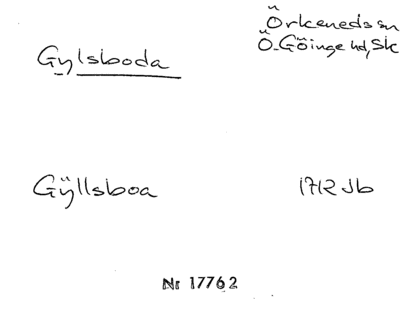 Örkeneds sn
Gylsboda
Ö. Göinge hd, Sk
Gÿllsboa
1712 Jb
Nr 17762